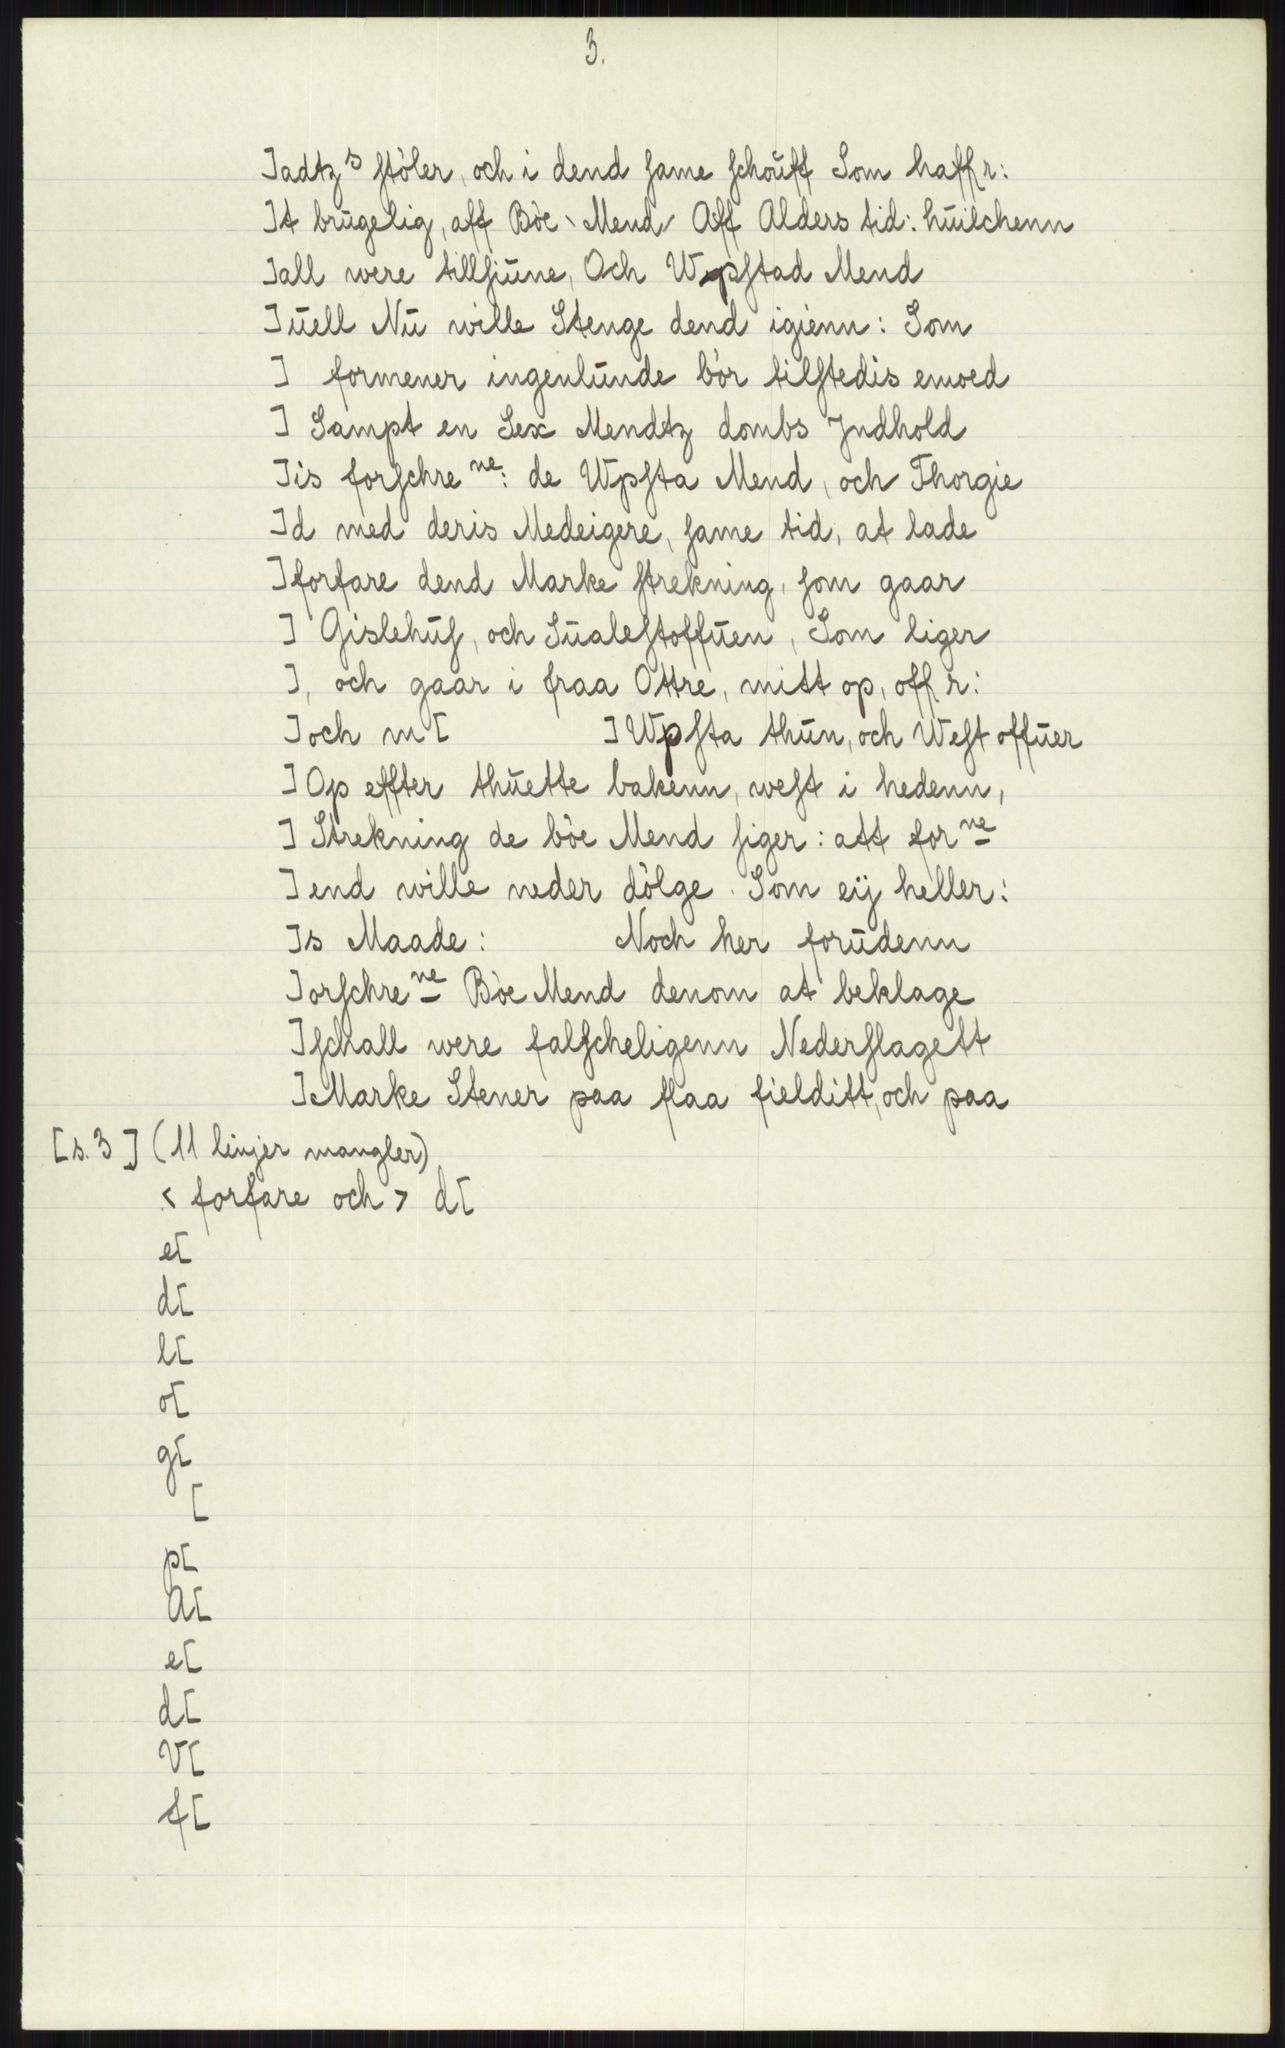 3.
]adtz s ſtöler, och i dend ſame ſchoŭff Som haffr:
]t brŭgelig, aff Böe Mend Aff Alders tid: hŭilchenn
]all were tillſiŭne, Och Wpſtad Mend
]ŭell Nŭ wille Stenge dend igienn: Som
] formener ingenlŭnde bör tilſtedis emoed
] Sampt en Sex Mendtz dombs Jndhold
]is forſchre ne: de Wpſta Mend, och Thorgie
]d med deris Medeigere, ſame tid, at lade
]forfare dend Marke ſtrekning, ſom gaar
] Gislehŭſ, och Sŭaleſtoffŭen, Som liger
], och gaar i fraa Ottre, mitt op, offr:
]och m[ ]Wpſta thŭn, och Weſt offŭer
]Op effter thŭette bakenn, weſt i hedenn,
] Strekning de böe Mend ſiger: att for ne
]end wille neder dölge. Som eÿ heller:
]s Maade: Noch her forŭdenn
]orſchre ne Böe Mend denom at beklage
]ſchall were falſcheligenn Nederſlagett
]Marke Stener paa flaa fielditt, och paa
[s. 3] (11 linjer mangler)
< forfare och > d[
e[
d[
l[
o[
g[
[
p[
A[
e[
d[
V[
f[